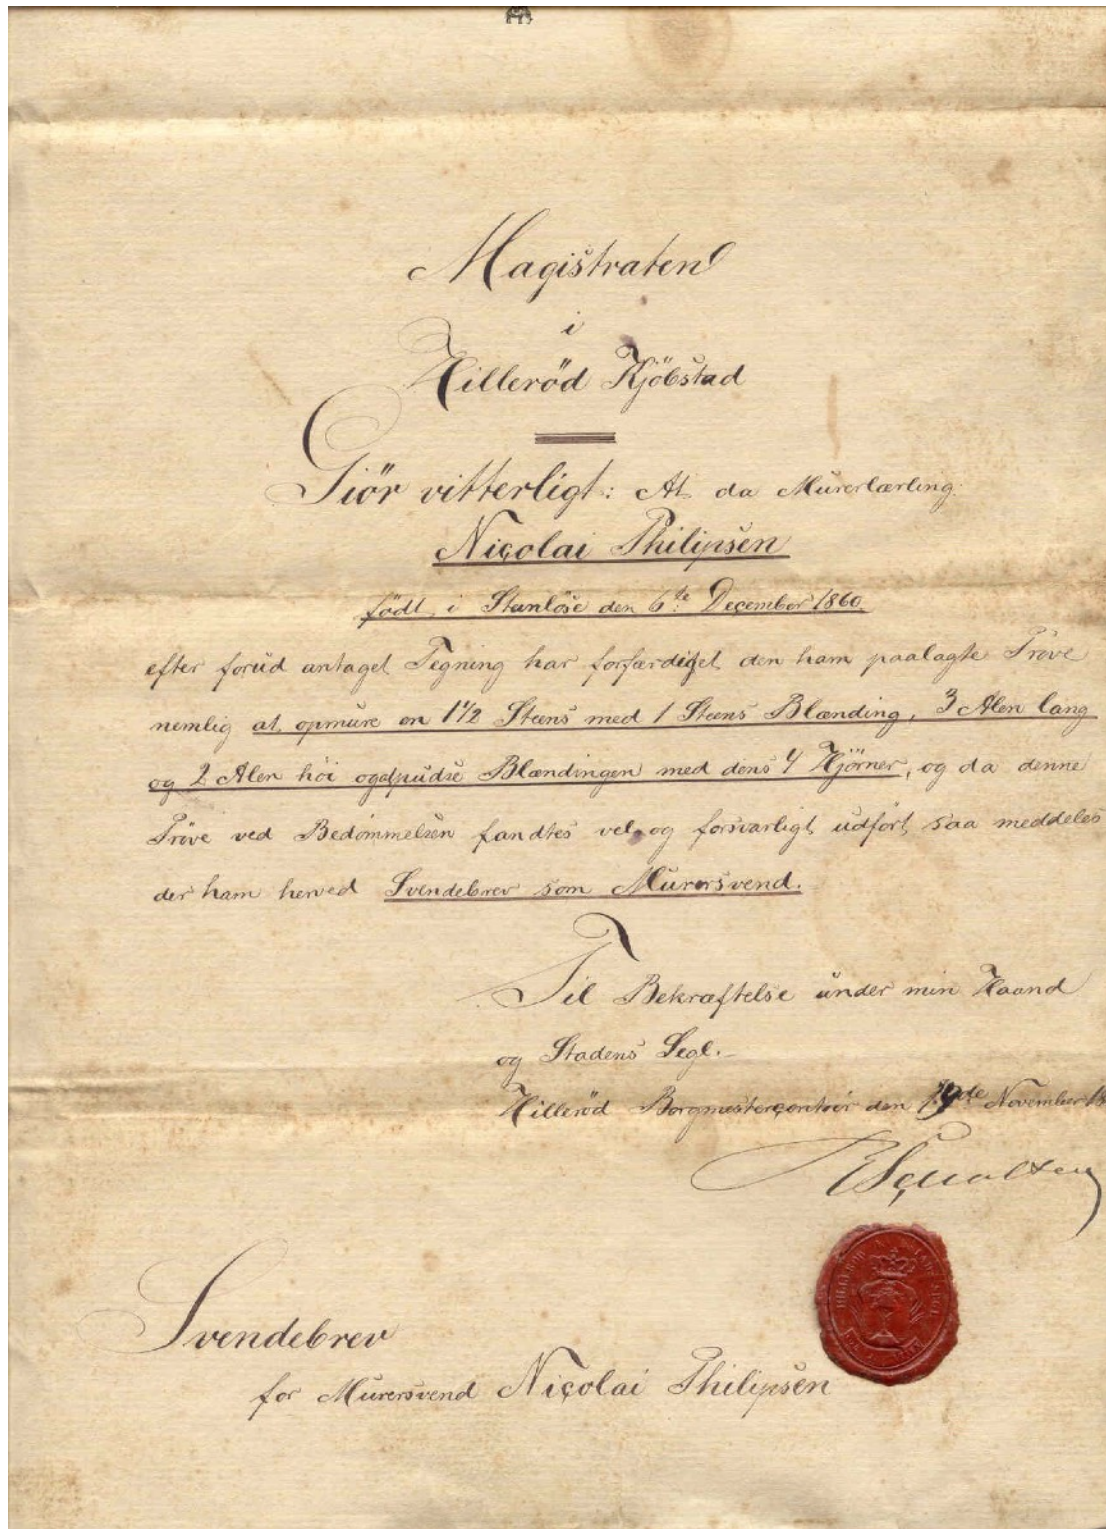 Magistraten
i
Hilleröd Kjöbstad
Giör vitterligt: At da Murerlærling
Nicolai Philipsen
födt i Stenlöse den 6te December 1860
efter forud antaget Tegning har forfærdiget den ham paalagte Pröve
nemlig at opmure en 1 1/2 Steens med 1 Steens Blænding, 3 Alen lang
og 2 Alen höi og afpudse Blændingen med dens 4 Hjörner, og da denne
Pröve ved Bedömmelsen fandtes vel og forsvarligt udfört, saa meddeles
der ham herved Svendebrev som Murersvend.
Til Bekræftelse under min Haand
og Stadens Segl.
Hilleröd Borgmestercontoir den November 18
Svendebrev
for Murersvend Nicolai Philipsen